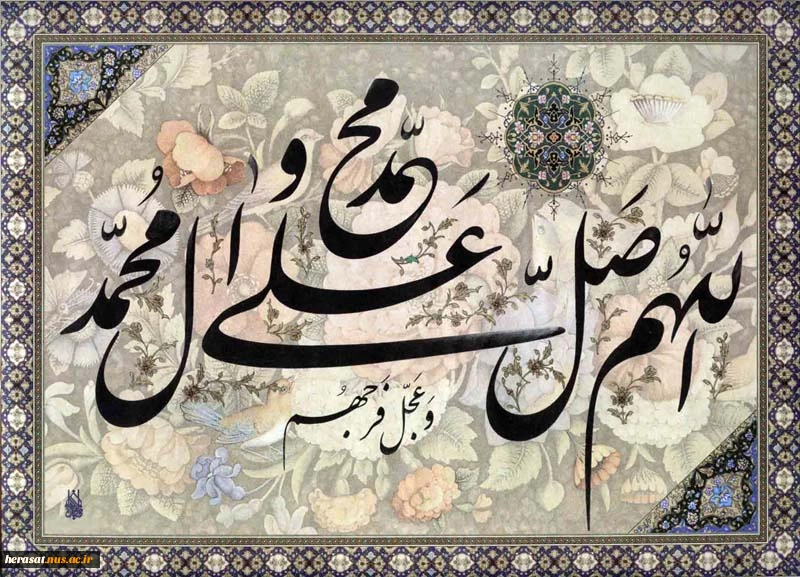 اللّٰهُم صَلّ عَلی محمّد و آل مُحمّد
وَ عَجّل فرجهُم
herasat.nus.ac.ir